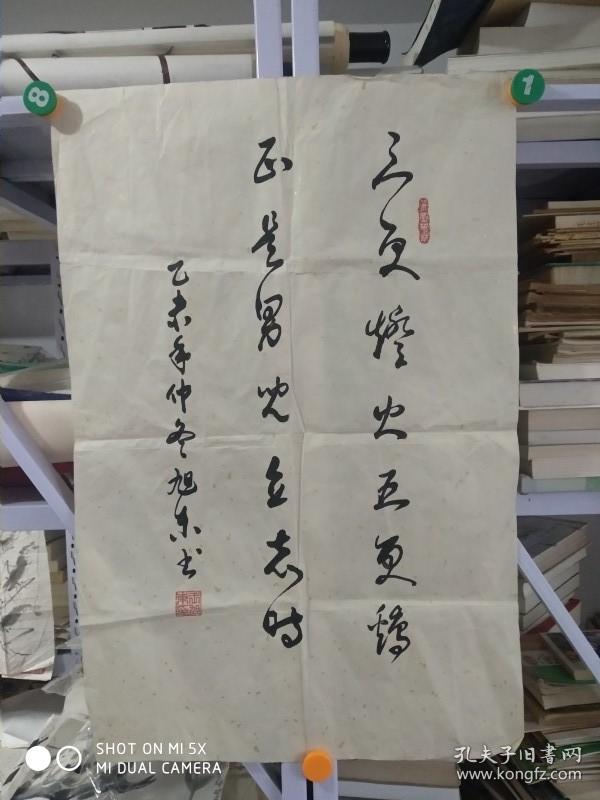 三更燈火五更鷄
正是男兒立志時
乙未年仲冬旭東书
8
1
SHOT ON MI 5X
MI DUAL CAMERA
孔夫子旧书网
www.kongfz.com